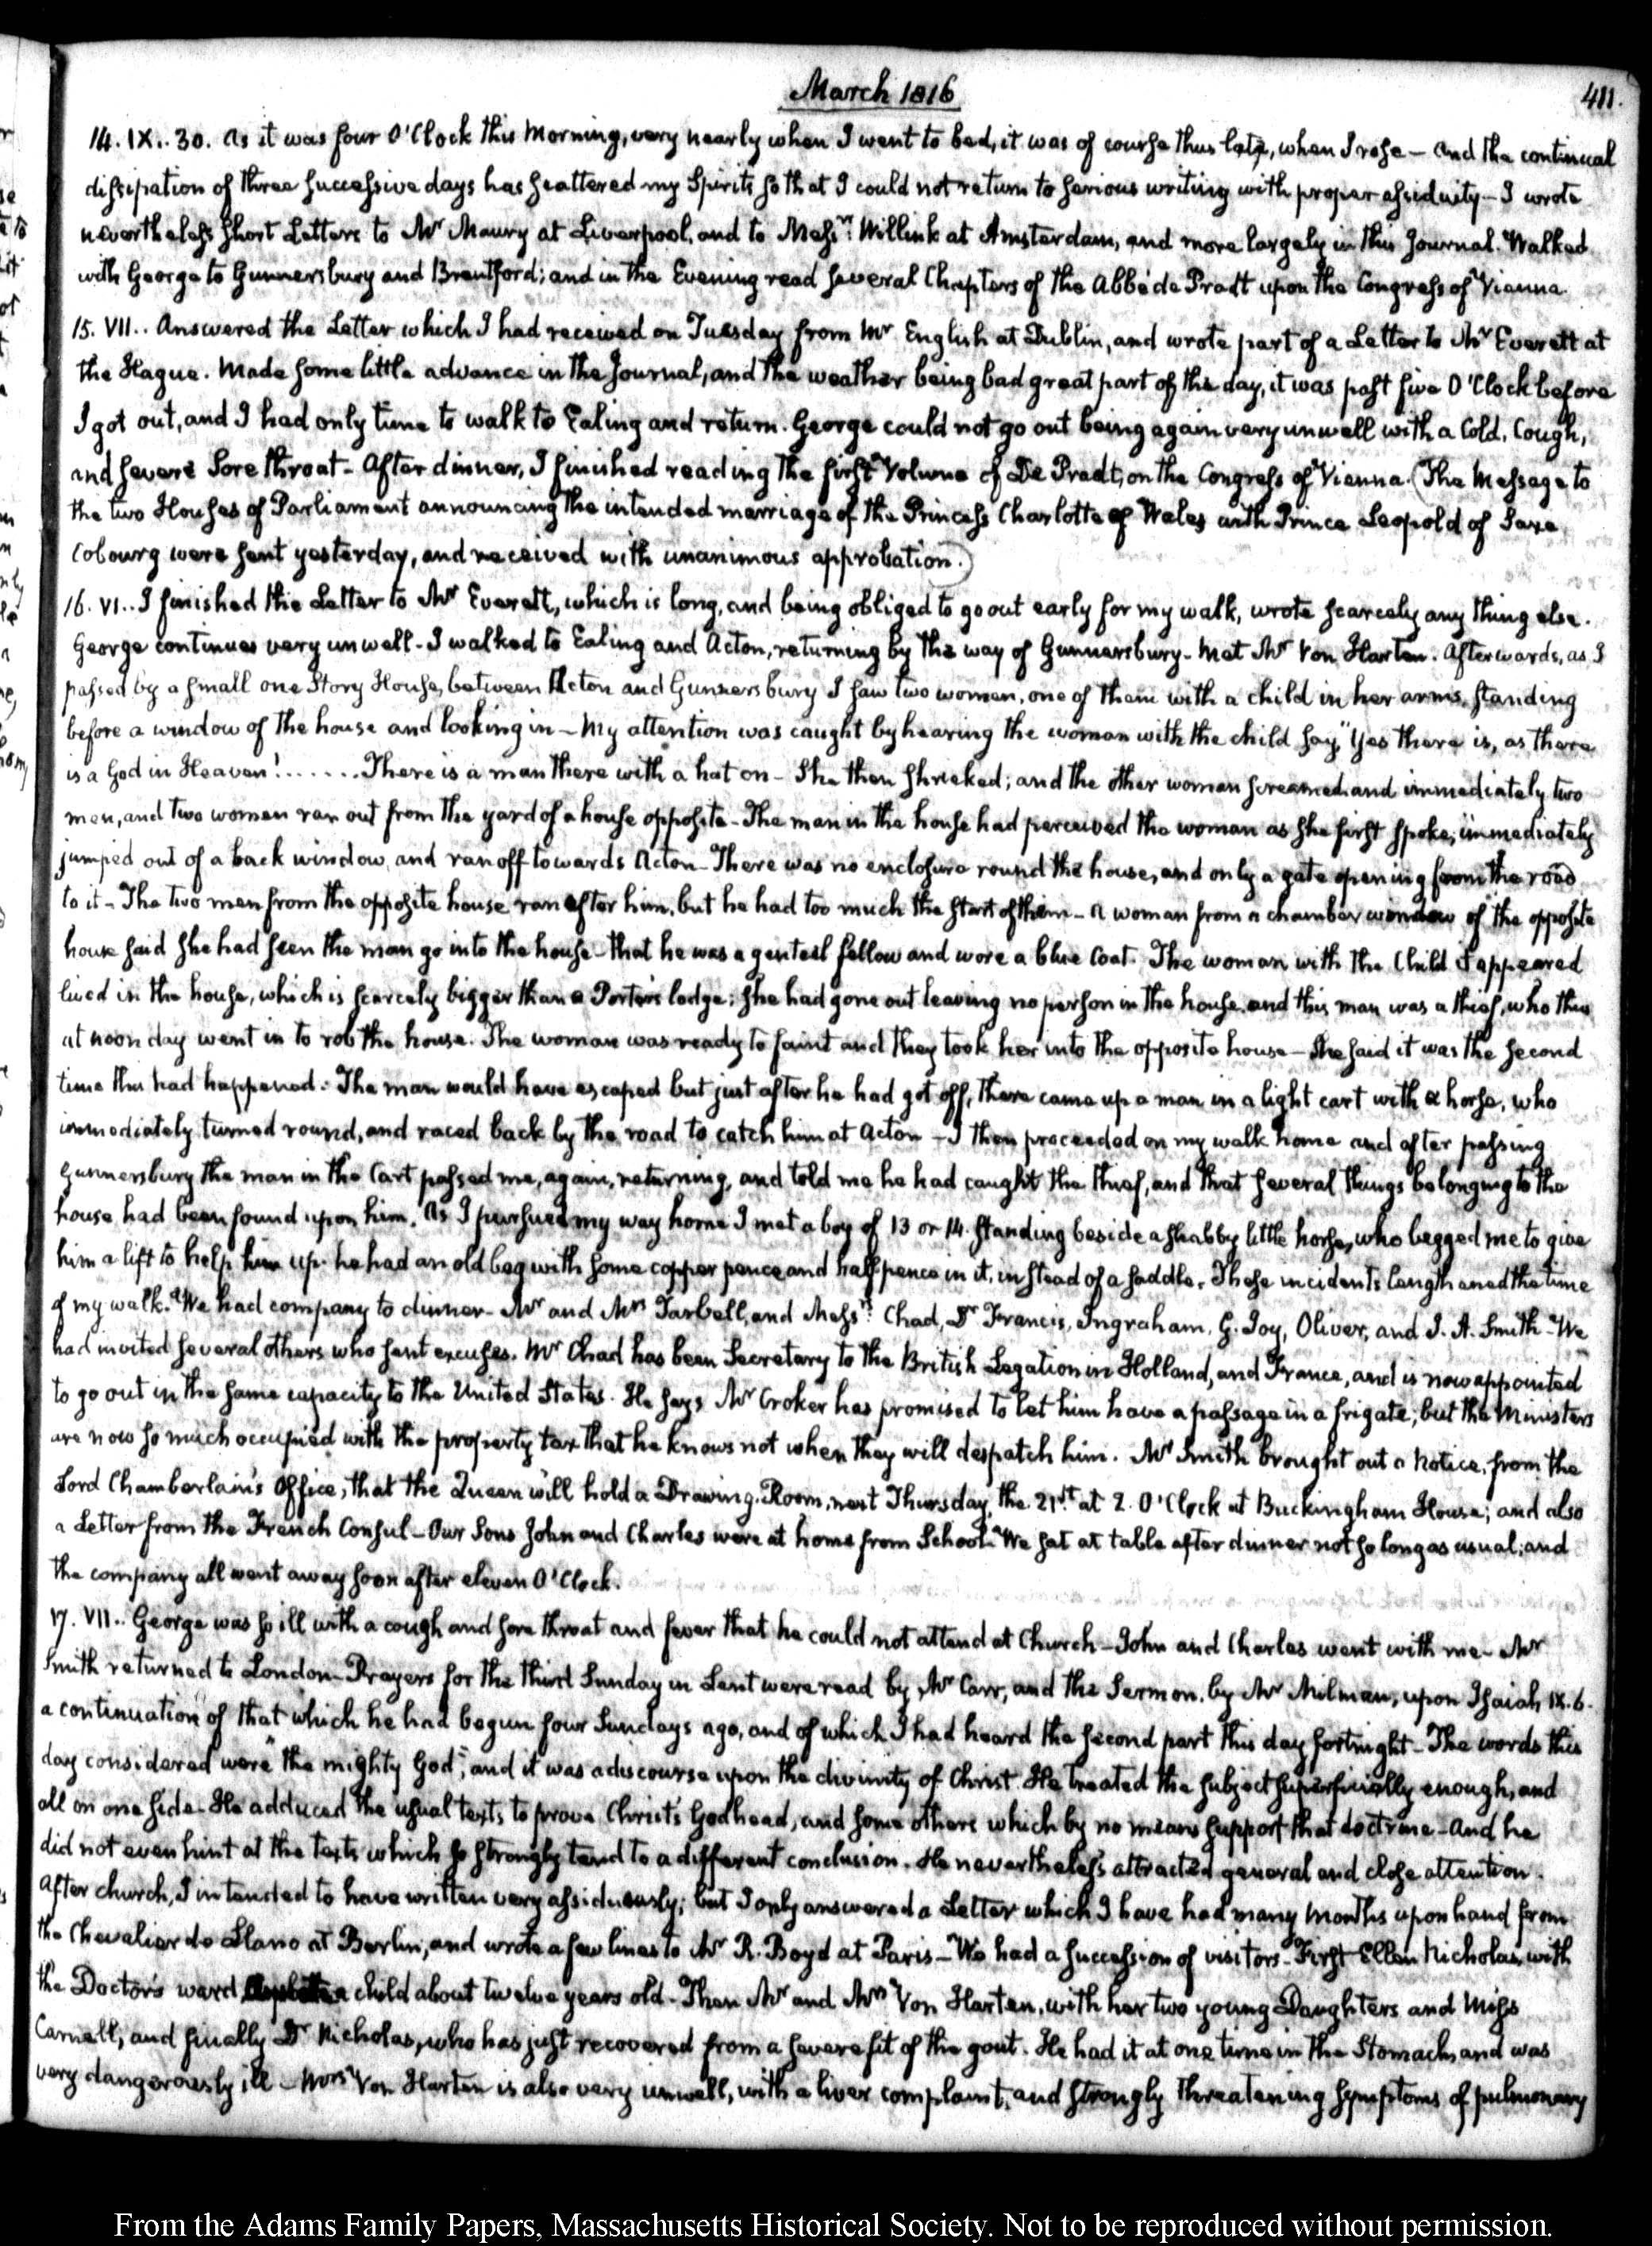 March 1816
411.
14. IX.. 30. As it was four O'Clock this Morning, very nearly when I went to bed, it was of course thus late, when I rose — and the continual
dissipation of three successive days has scattered my Spirits so that I could not return to serious writing with proper assiduity — I wrote
nevertheless short Letters to Mr Maury at Liverpool, and to Messrs: Willink at Amsterdam, and more largely in this Journal. Walked
with George to Gunnersbury and Brentford; and in the Evening read several Chapters of the Abbé de Pradt upon the Congress of Vienna.
15. VII.. Answered the Letter which I had received on Tuesday from Mr English at Dublin, and wrote part of a Letter to Mr Everett at
the Hague. Made some little advance in the Journal, and the weather being bad great part of the day, it was past five O'Clock before
I got out, and I had only time to walk to Ealing and return. George could not go out being again very unwell with a Cold, Cough,
and severe Sore throat - After dinner, I finished reading the first Volume of De Pradt, on the Congress of Vienna. (The Message to
the two Houses of Parliament announcing the intended marriage of the Princess Charlotte of Wales with Prince Leopold of Saxe
Cobourg were sent yesterday, and received with unanimous approbation.)
16. VI.. I finished the Letter to Mr Everett, which is long, and being obliged to go out early for my walk, wrote scarcely any thing else.
George continues very unwell - I walked to Ealing and Acton, returning by the way of Gunnersbury - Met Mr Von Harten. Afterwards, as I
passed by a small one Story House, between Acton and Gunnersbury I saw two women, one of them with a child in her arms, standing
before a window of the house and looking in — My attention was caught by hearing the woman with the child say, "Yes there is, as there
is a God in Heaven! ...... There is a man there with a hat on - She then shrieked; and the other woman screamed and immediately two
men, and two women ran out from the yard of a house opposite - The man in the house had perceived the woman as she first spoke, immediately
jumped out of a back window, and ran off towards Acton - There was no enclosure round the house, and only a gate opening from the road
to it - The two men from the opposite house ran after him, but he had too much the start of them - A woman from a chamber window of the opposite
house said she had seen the man go into the house - that he was a genteel fellow and wore a blue Coat. The woman with the Child it appeared
lived in the house, which is scarcely bigger than a Porter's lodge; she had gone out leaving no person in the house, and this man was a thief, who thus
at noon day went in to rob the house. The woman was ready to faint and they took her into the opposite house — She said it was the second
time this had happened. The man would have escaped but just after he had got off, there came up a man in a light cart with a horse, who
immediately turned round, and raced back by the road to catch him at Acton — I then proceeded on my walk home and after passing
Gunnersbury the man in the Cart passed me, again, returning, and told me he had caught the thief, and that several things belonging to the
house had been found upon him. As I pursued my way home I met a boy of 13 or 14. standing beside a shabby little horse, who begged me to give
him a lift to help him up. he had an old bag with some copper pence and half pence in it, instead of a saddle. These incidents lengthened the time
of my walk. We had company to dinner - Mr and Mrs Tarbell, and Messrs: Chad, Dr Francis, Ingraham, G. Joy, Oliver, and J. A. Smith - We
had invited several others who sent excuses. Mr Chad has been Secretary to the British Legation in Holland, and France, and is now appointed
to go out in the same capacity to the United States. He says Mr Croker has promised to let him have a passage in a frigate; but the Ministers
are now so much occupied with the property tax that he knows not when they will despatch him. Mr Smith brought out a Notice, from the
Lord Chamberlain's Office, that the Queen will hold a Drawing-Room, next Thursday, the 21st at 2. O'Clock at Buckingham House; and also
a Letter from the French Consul - Our Sons John and Charles were at home from School - We sat at table after dinner not so long as usual; and
the company all went away soon after eleven O'Clock.
17. VII.. George was so ill with a cough and sore throat and fever that he could not attend at Church - John and Charles went with me - Mr
Smith returned to London - Prayers for the third Sunday in Lent were read by Mr Carr, and the Sermon, by Mr Milman, upon Isaiah IX. 6.
a continuation of that which he had begun four Sundays ago, and of which I had heard the second part this day fortnight - The words this
day considered were "the mighty God", and it was a discourse upon the divinity of Christ. He treated the subject superficially enough, and
all on one side - He adduced the usual texts to prove Christ's Godhead, and some others which by no means support that doctrine - And he
did not even hint at the texts which so strongly tend to a different conclusion. He nevertheless attracted general and close attention.
After church, I intended to have written very assiduously; but I only answered a Letter which I have had many Months upon hand from
the Chevalier de Llano at Berlin, and wrote a few lines to Mr R. Boyd at Paris - We had a succession of visitors - First Ellen Nicholas, with
the Doctor's ward a child about twelve years old - Then Mr and Mrs Von Harten, with her two young Daughters and Miss
Carnell, and finally Dr Nicholas, who has just recovered from a severe fit of the gout. He had it at one time in the Stomach, and was
very dangerously ill - Mrs Von Harten is also very unwell, with a liver complaint, and strongly threatening symptoms of pulmonary
From the Adams Family Papers, Massachusetts Historical Society. Not to be reproduced without permission.